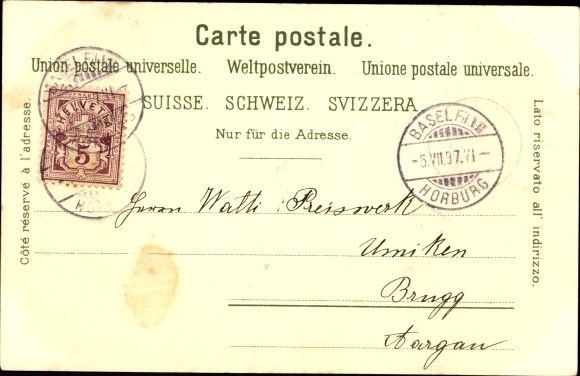 Carte postale.
Union postale universelle. Weltpostverein. Unione postale universale.
SUISSE. SCHWEIZ. SVIZZERA
Nur für die Adresse.
Côté réservé à l'adresse.
Lato riservato all' indirizzo.
5
BASEL FIL
-5.VII.97.VI-
HORBURG
Herrn Watti Preiswerk
Umiken
Brugg
Aargau